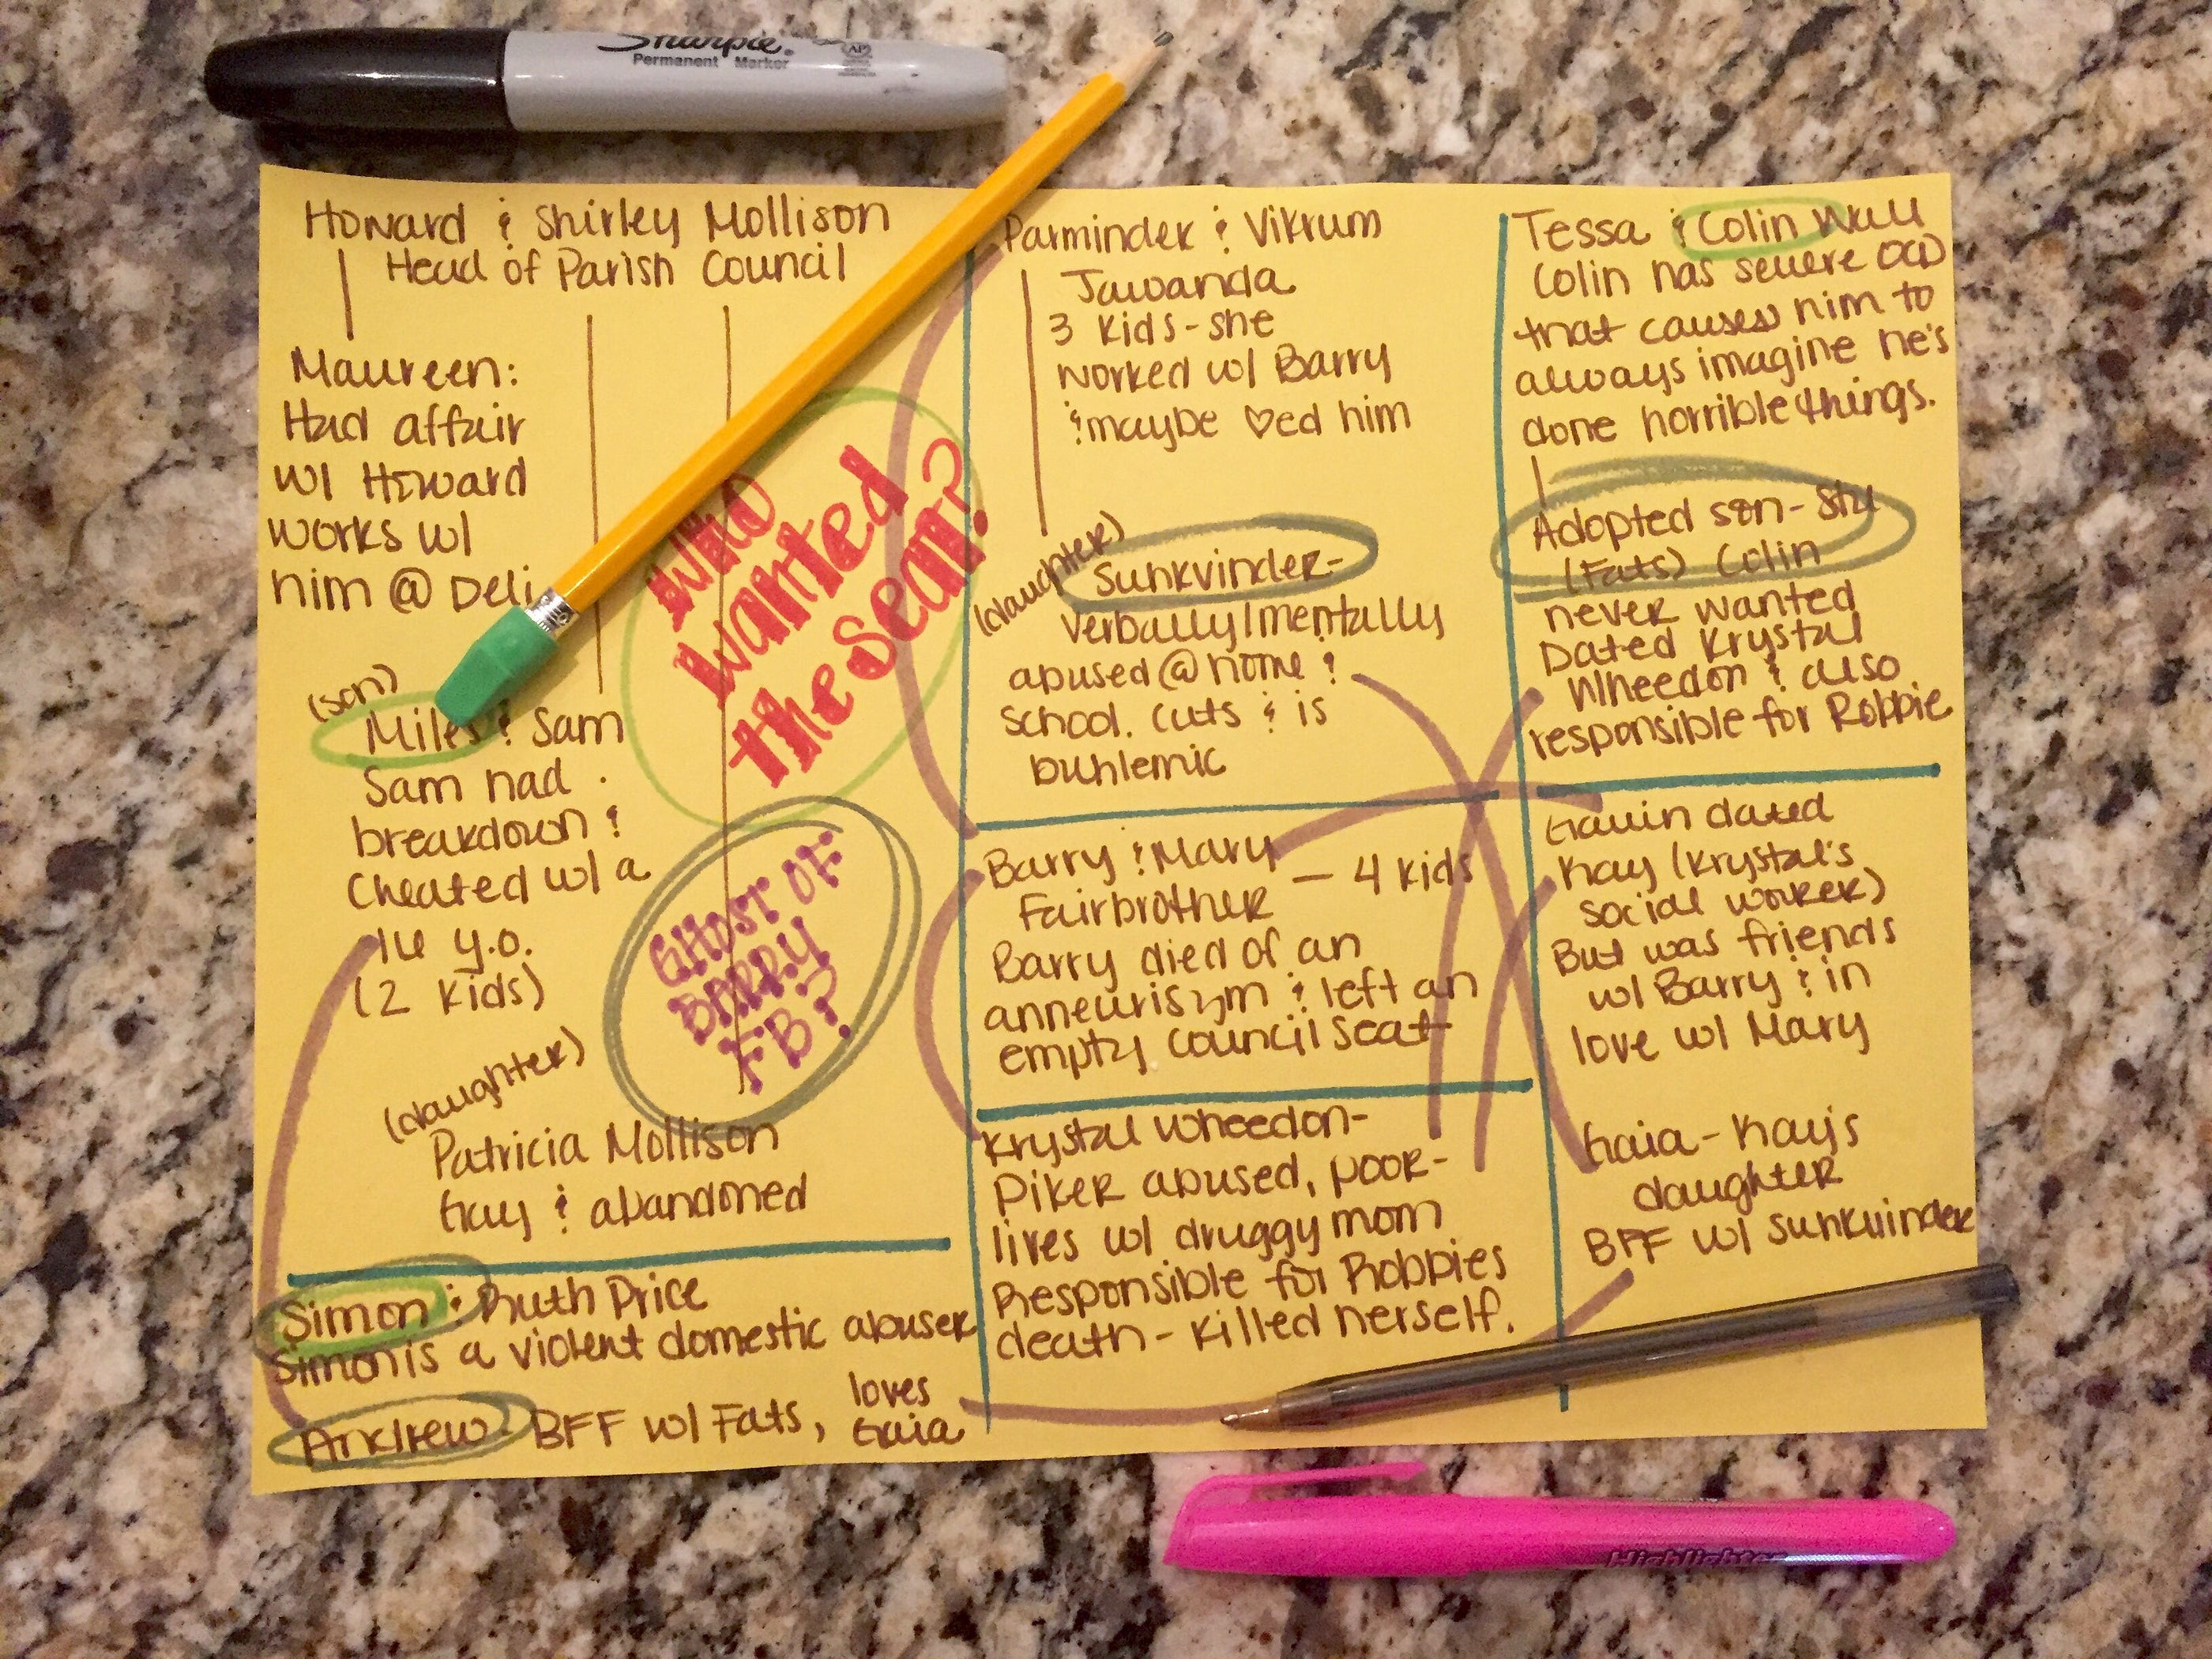 Sharpie.
Permanent Marker
AP
Howard & Shirley Mollison
Head of Parish Council
Maureen:
Had affair
w/ Howard
works w/
him @ Deli
(son)
Miles & Sam
Sam had
breakdown &
Cheated w/ a
16 y.o.
(2 kids)
(daughter)
Patricia Mollison
Gay & abandoned
Who
wanted
the Seat?
GHOST OF
BARRY
FB?
Simon & Ruth Price
Simon is a violent domestic abuser
Andrew BFF w/ Fats, loves
Gaia
Parminder & Vikrum
Jawanda
3 kids - she
worked w/ Barry
& maybe ♡ed him
(daughter)
Sunkvinder-
verbally/mentally
abused @ home &
school. Cuts & is
buhlemic
Barry & Mary
Fairbrother — 4 kids
Barry died of an
anneurisym & left an
empty council seat
Krystal Wheedon-
Piker abused, poor-
lives w/ druggy mom
Responsible for Robbies
death - killed herself.
Tessa & Colin Wall
Colin has severe OCD
that causes him to
always imagine he's
done horrible things.
Adopted son - Stu
(Fats) Colin
never wanted
Dated Krystal
Wheedon & also
responsible for Robbie
Gavin dated
Kay (Krystal's
social worker)
But was friends
w/ Barry & in
love w/ Mary
Gaia - Kay's
daughter
BFF w/ Sunkvinder
Highlighter